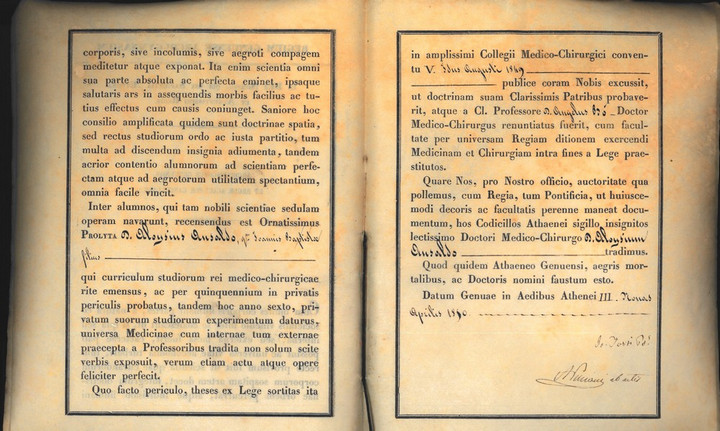 corporis, sive incolumis, sive aegroti compagem
meditetur atque exponat. Ita enim scientia omni
sua parte absoluta ac perfecta eminet, ipsaque
salutaris ars in assequendis morbis facilius ac tu-
tius effectus cum causis coniunget. Saniore hoc
consilio amplificata quidem sunt doctrinae spatia,
sed rectus studiorum ordo ac iusta partitio, tum
multa ad discendum insignia adiumenta, tandem
acrior contentio alumnorum ad scientiam perfe-
ctam atque ad aegrotorum utilitatem spectantium,
omnia facile vincit.
Inter alumnos, qui tam nobili scientiae sedulam
operam navarunt, recensendus est Ornatissimus
PROLYTA D. Aloysius Ansaldo, qm Joannis Baptistae
filius
qui curriculum studiorum rei medico-chirurgicae
rite emensus, ac per quinquennium in privatis
periculis probatus, tandem hoc anno sexto, pri-
vatum suorum studiorum experimentum daturus,
universa Medicinae cum internae tum externae
praecepta a Professoribus tradita non solum scite
verbis exposuit, verum etiam actu atque opere
feliciter perfecit.
Quo facto periculo, theses ex Lege sortitas ita
in amplissimi Collegii Medico-Chirurgici conven-
tu V. Idus Augusti 1849
publice coram Nobis excussit,
ut doctrinam suam Clarissimis Patribus probave-
rit, atque a Cl. Professore D. Angelus Bò Doctor
Medico-Chirurgus renuntiatus fuerit, cum facul-
tate per universam Regiam ditionem exercendi
Medicinam et Chirurgiam intra fines a Lege prae-
stitutos.
Quare Nos, pro Nostro officio, auctoritate qua
pollemus, cum Regia, tum Pontificia, ut huiusce-
modi decoris ac facultatis perenne maneat docu-
mentum, hos Codicillos Athenaei sigillo insignitos
lectissimo Doctori Medico-Chirurgo D. Aloysium
Ansaldo tradimus.
Quod quidem Athaeneo Genuensi, aegris mor-
talibus, ac Doctoris nomini faustum esto.
Datum Genuae in Aedibus Athenei III. Nonas
Aprilis